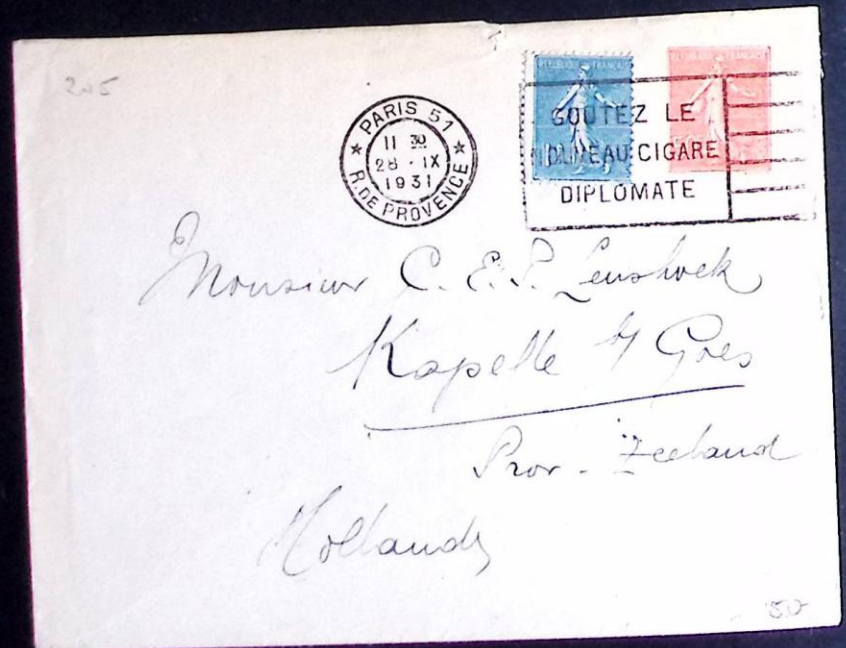 205
PARIS 51
11 30
28 · IX
1931
R. DE PROVENCE
REPUBLIQUE FRANÇAISE
REPUBLIQUE FRANÇAISE
GOUTEZ LE
NOUVEAU CIGARE
DIPLOMATE
Monsieur C. E. P. Lenshoek
Kapelle b/ Goes
Prov. Zeeland
Hollande
50